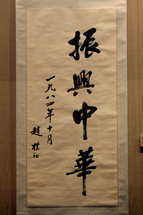 振興中華
一九八四年十月
趙樸初